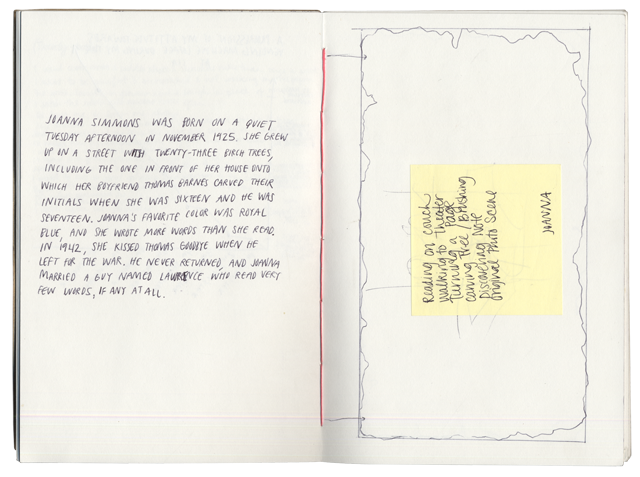 JOANNA SIMMONS WAS BORN ON A QUIET
TUESDAY AFTERNOON IN NOVEMBER 1925. SHE GREW
UP ON A STREET WITH TWENTY-THREE BIRCH TREES,
INCLUDING THE ONE IN FRONT OF HER HOUSE ONTO
WHICH HER BOYFRIEND THOMAS BARNES CARVED THEIR
INITIALS WHEN SHE WAS SIXTEEN AND HE WAS
SEVENTEEN. JOANNA'S FAVORITE COLOR WAS ROYAL
BLUE, AND SHE WROTE MORE WORDS THAN SHE READ.
IN 1942, SHE KISSED THOMAS GOODBYE WHEN HE
LEFT FOR THE WAR. HE NEVER RETURNED, AND JOANNA
MARRIED A GUY NAMED LAWRENCE WHO READ VERY
FEW WORDS, IF ANY AT ALL.
Reading on couch
Walking to Theater
Turning a Page
carving Tree / Brushing
Discovering Note
original Photo Scene
JOANNA